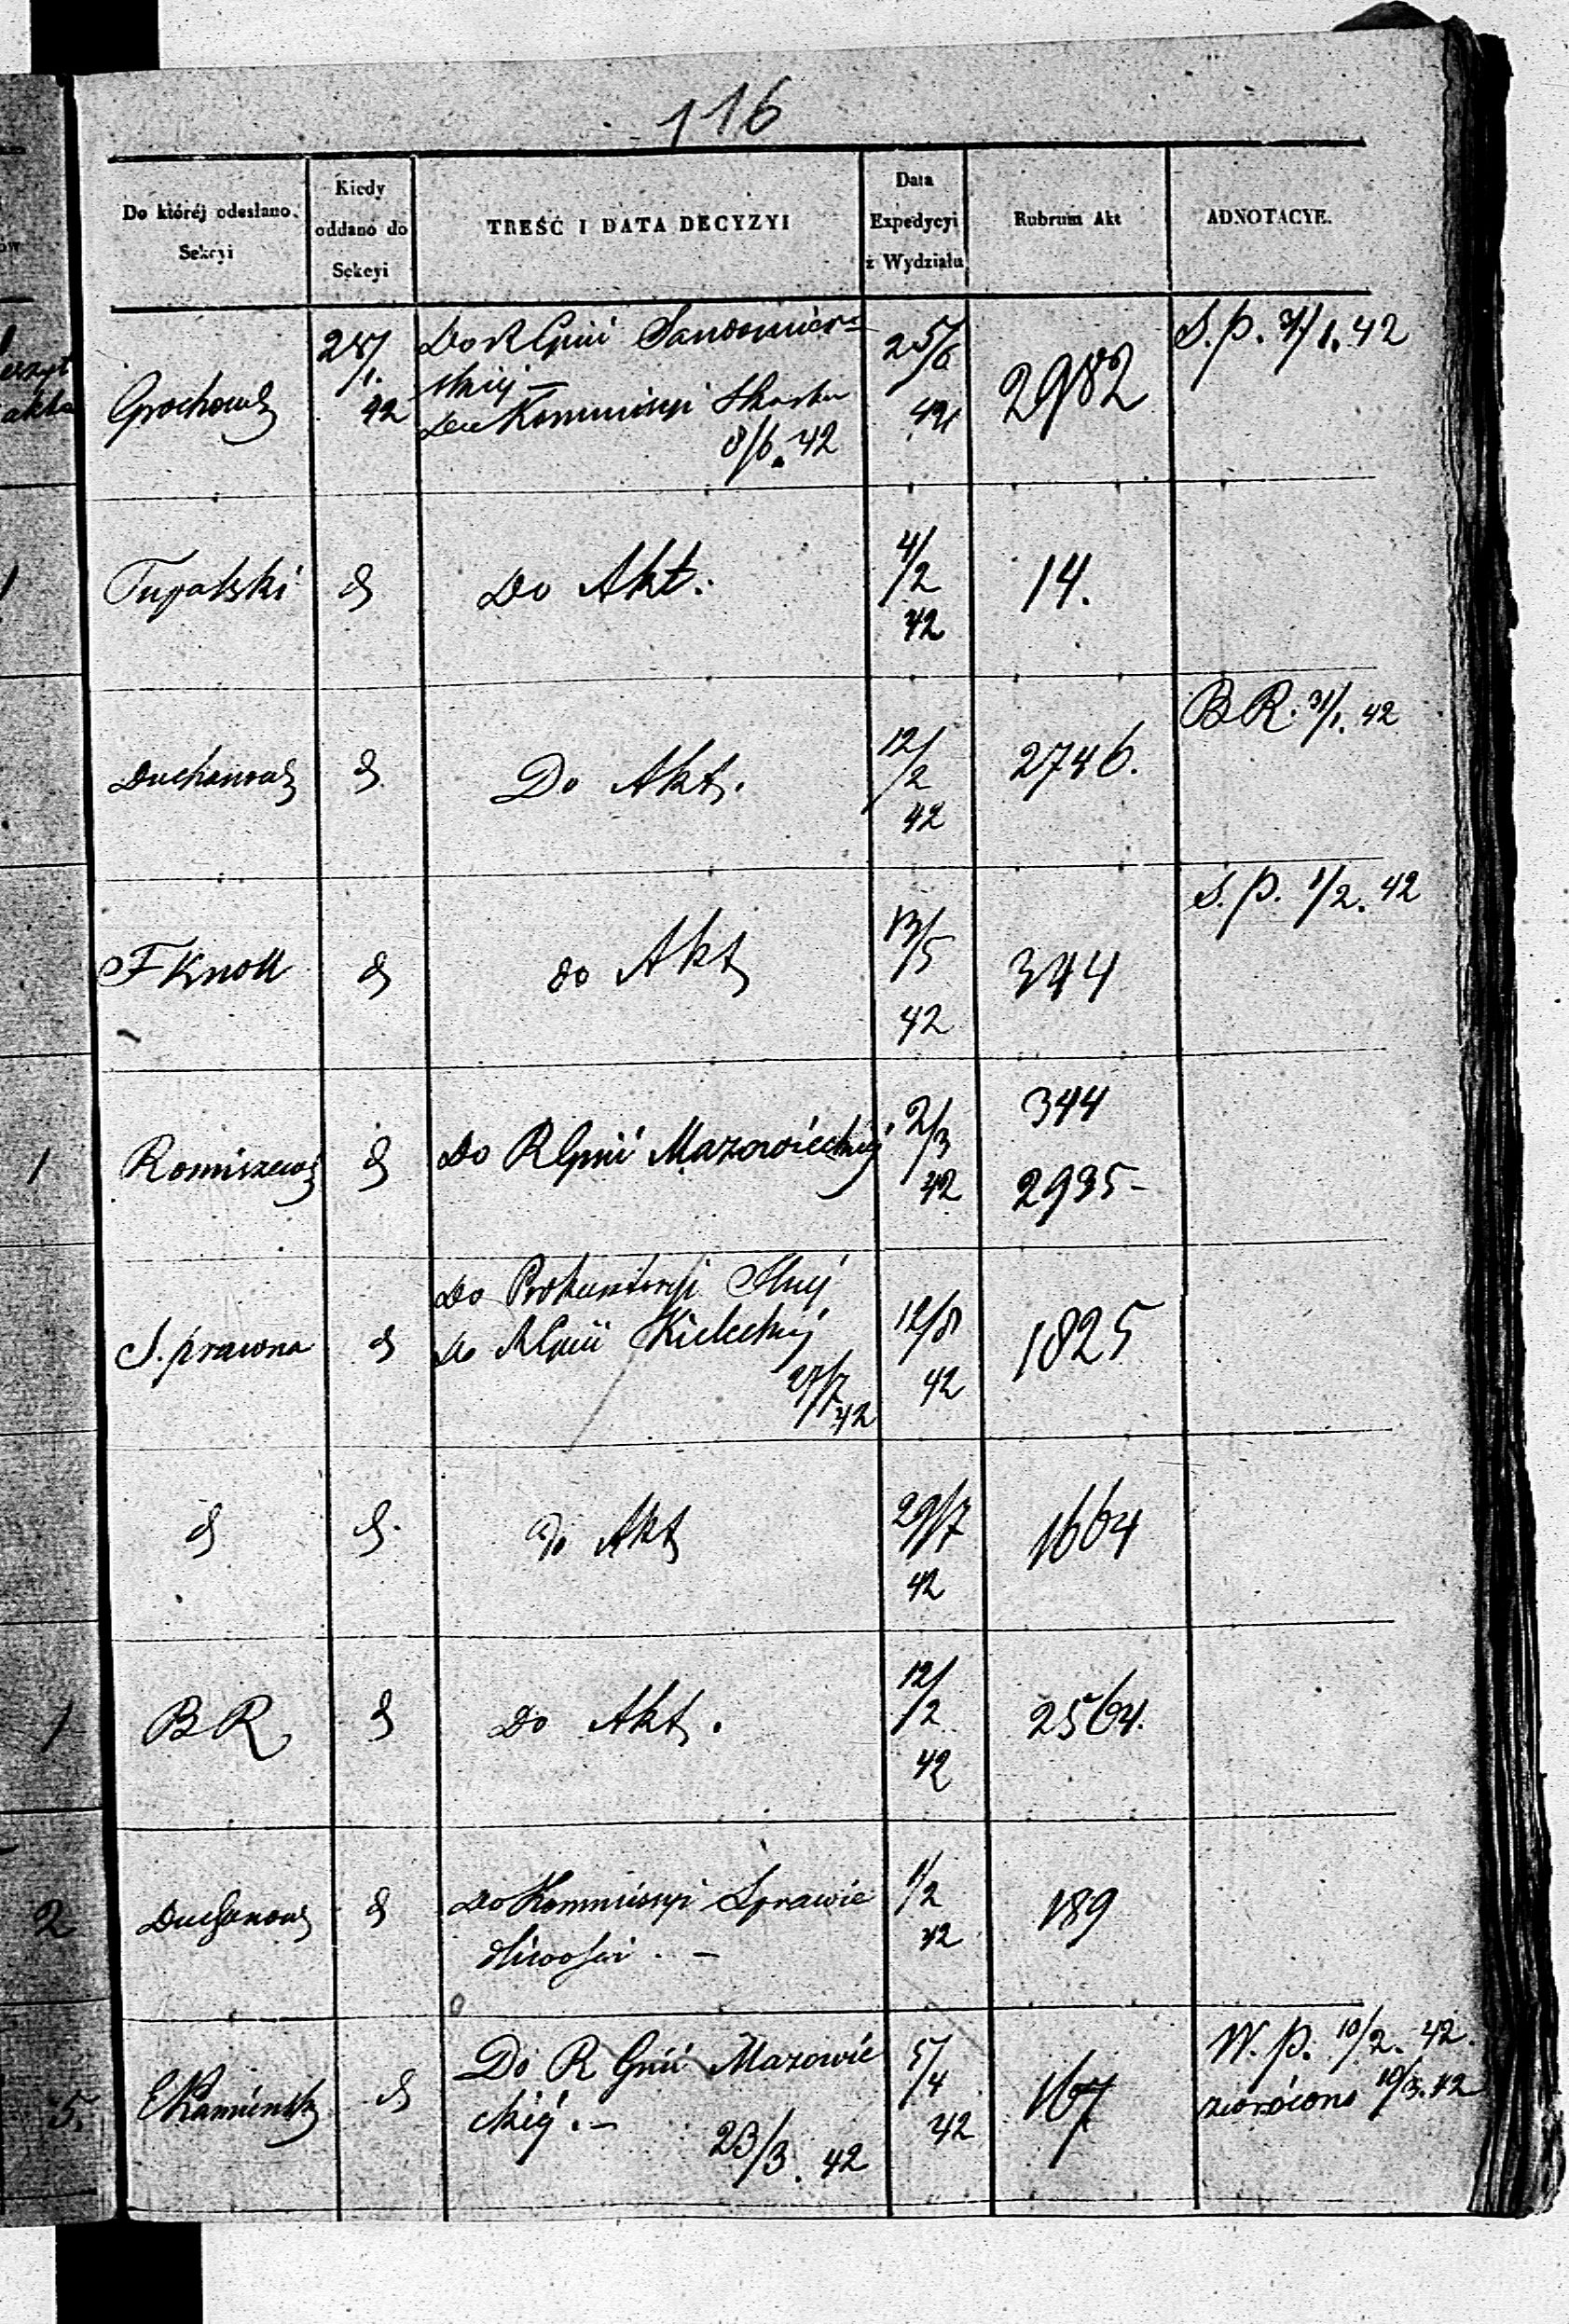 116
Do któréj odesłano.
Sekcyi
Kiedy
oddano do
Sekcyi
TREŚĆ I DATA DECYZYI
Data
Expedycyi
z Wydziału
Rubrum Akt
ADNOTACYE.
28/1.
42
Do R Gnii Sandomier=
skiéj —
Do Kommissyi Skarbu
8/6. 42
25/6
42
2982
S. P. 31/1. 42
Tupalski
d
Do Akt.
4/2
42
14.
d
Do Akt.
12/2
42
2746.
BR. 31/1. 42
F Knoll
d
do Akt
13/5
42
344
S. P. 1/2. 42
1
d
Do R Gnii Mazowieckiéj
2/3
42
344
2935-
S. prawna
d
Do Prokuratoryi
Do R Gnii Kieleckiéj
27/7 42
12/8
42
1825
d
d.
do Akt
29/7
42
1664
1
B R
d
Do Akt.
12/2
42
2564.
2
d
Do Kommissyi Sprawie
dliwości . —
1/2
42
189
5.
d
Do R Gnii Mazowie
ckiéj . —
23/3. 42
5/4
42
167
W. P. 10/2. 42.
zwrócono 10/3. 42